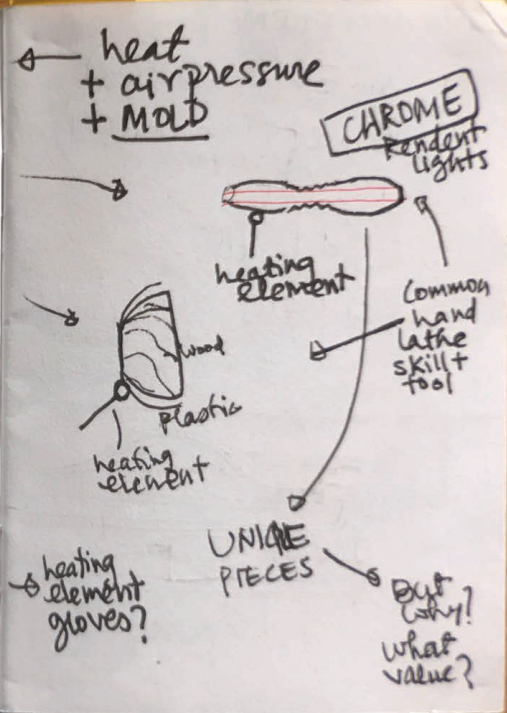 heat
+ air pressure
+ MOLD
CHROME
Pendent
lights
heating
element
Common
hand
lathe
skill +
tool
wood
plastic
heating
element
UNIQUE
PIECES
heating
element
gloves?
But
why?
what
value?